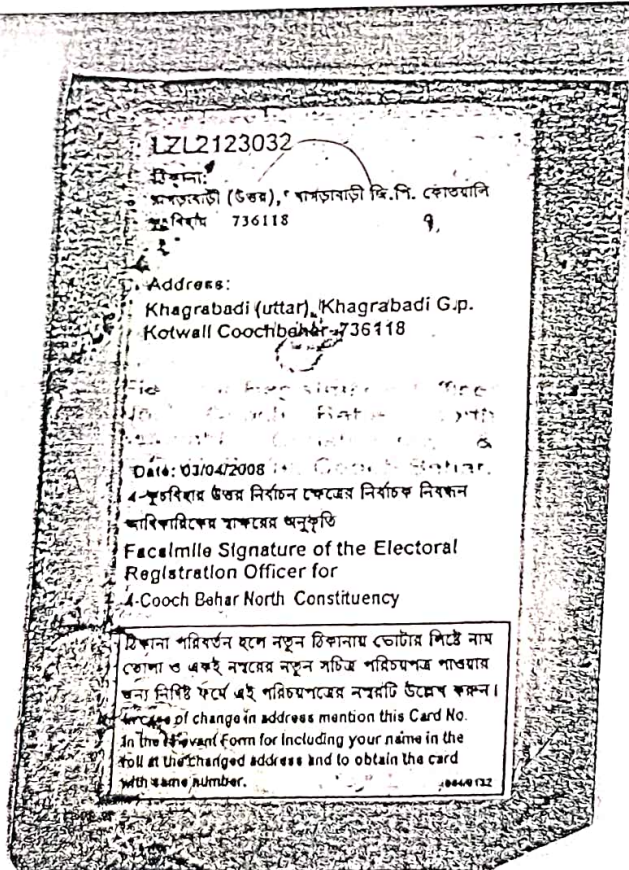 LZL2123032
ঠিকানা:
খাগড়াবাড়ী (উত্তর), খাগড়াবাড়ী জি.পি. কোতয়ালি
736118
Address:
Khagrabadi (uttar), Khagrabadi G.p.
Kotwali Coochbehar-736118
Date: 03/04/2008
4-কুচবিহার উত্তর নির্বাচন ক্ষেত্রের নির্বাচক নিবন্ধন
আধিকারিকের স্বাক্ষরের অনুকৃতি
Facsimile Signature of the Electoral
Registration Officer for
4-Cooch Behar North Constituency
ঠিকানা পরিবর্তন হলে নতুন ঠিকানায় ভোটার লিষ্টে নাম
তোলা ও একই নম্বরের নতুন সচিত্র পরিচয়পত্র পাওয়ার
জন্য নির্দিষ্ট ফর্মে এই পরিচয়পত্রের নম্বরটি উল্লেখ করুন।
In case of change in address mention this Card No.
in the relevant Form for including your name in the
roll at the changed address and to obtain the card
with same number.